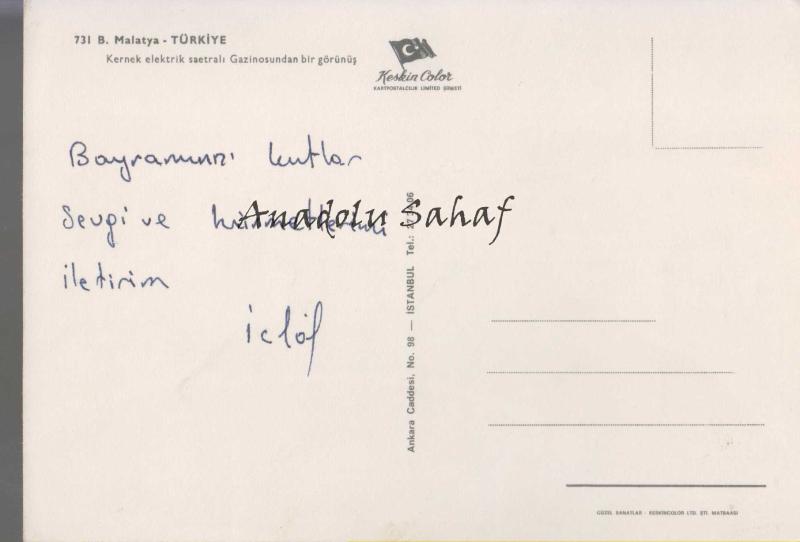 731 B. Malatya - TÜRKİYE
Kernek elektrik saetralı Gazinosundan bir görünüş
Keskin Color
KARTPOSTALCILIK LIMITED ŞİRKETİ
Bayramınızı kutlar
Sevgi ve hürmetlerimi
iletirim
Anadolu Sahaf
Ankara Caddesi, No. 98 — İSTANBUL Tel.:
GÜZEL SANATLAR - KESKINCOLOR LTD. ŞTİ. MATBAASI